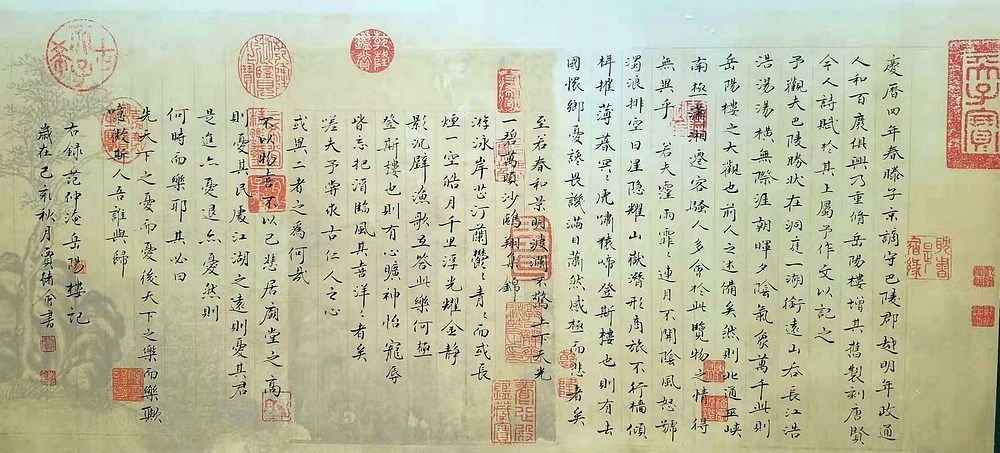 慶曆四年春滕子京謫守巴陵郡越明年政通
人和百廢俱興乃重修岳陽樓增其舊製刻唐賢
今人詩賦於其上屬予作文以記之
予觀夫巴陵勝狀在洞庭一湖銜遠山吞長江浩
浩湯湯橫無際涯朝暉夕陰氣象萬千此則
岳陽樓之大觀也前人之述備矣然則北通巫峽
南極瀟湘遷客騷人多會於此覽物之情得
無異乎 若夫霪雨霏々連月不開陰風怒號
濁浪排空日星隱耀山嶽潛形商旅不行檣傾
楫摧薄暮冥々虎嘯猿啼登斯樓也則有去
國懷鄉憂讒畏譏滿目蕭然感極而悲者矣
至若春和景明波瀾不驚上下天光
一碧萬頃沙鷗翔集錦
游泳岸芷汀蘭鬱々青々而或長
煙一空皓月千里浮光耀金靜
影沉璧漁歌互答此樂何極
登斯樓也則有心曠神怡寵辱
皆忘把酒臨風其喜洋々者矣
嗟夫予嘗求古仁人之心
或異二者之為何哉
不以物喜不以己悲居廟堂之高
則憂其民處江湖之遠則憂其君
是進亦憂退亦憂然則
何時而樂耶其必曰
先天下之憂而憂後天下之樂而樂歟
噫微斯人吾誰與歸
右錄范仲淹岳陽樓記
歲在己亥秋月賈書
乾隆鑑賞